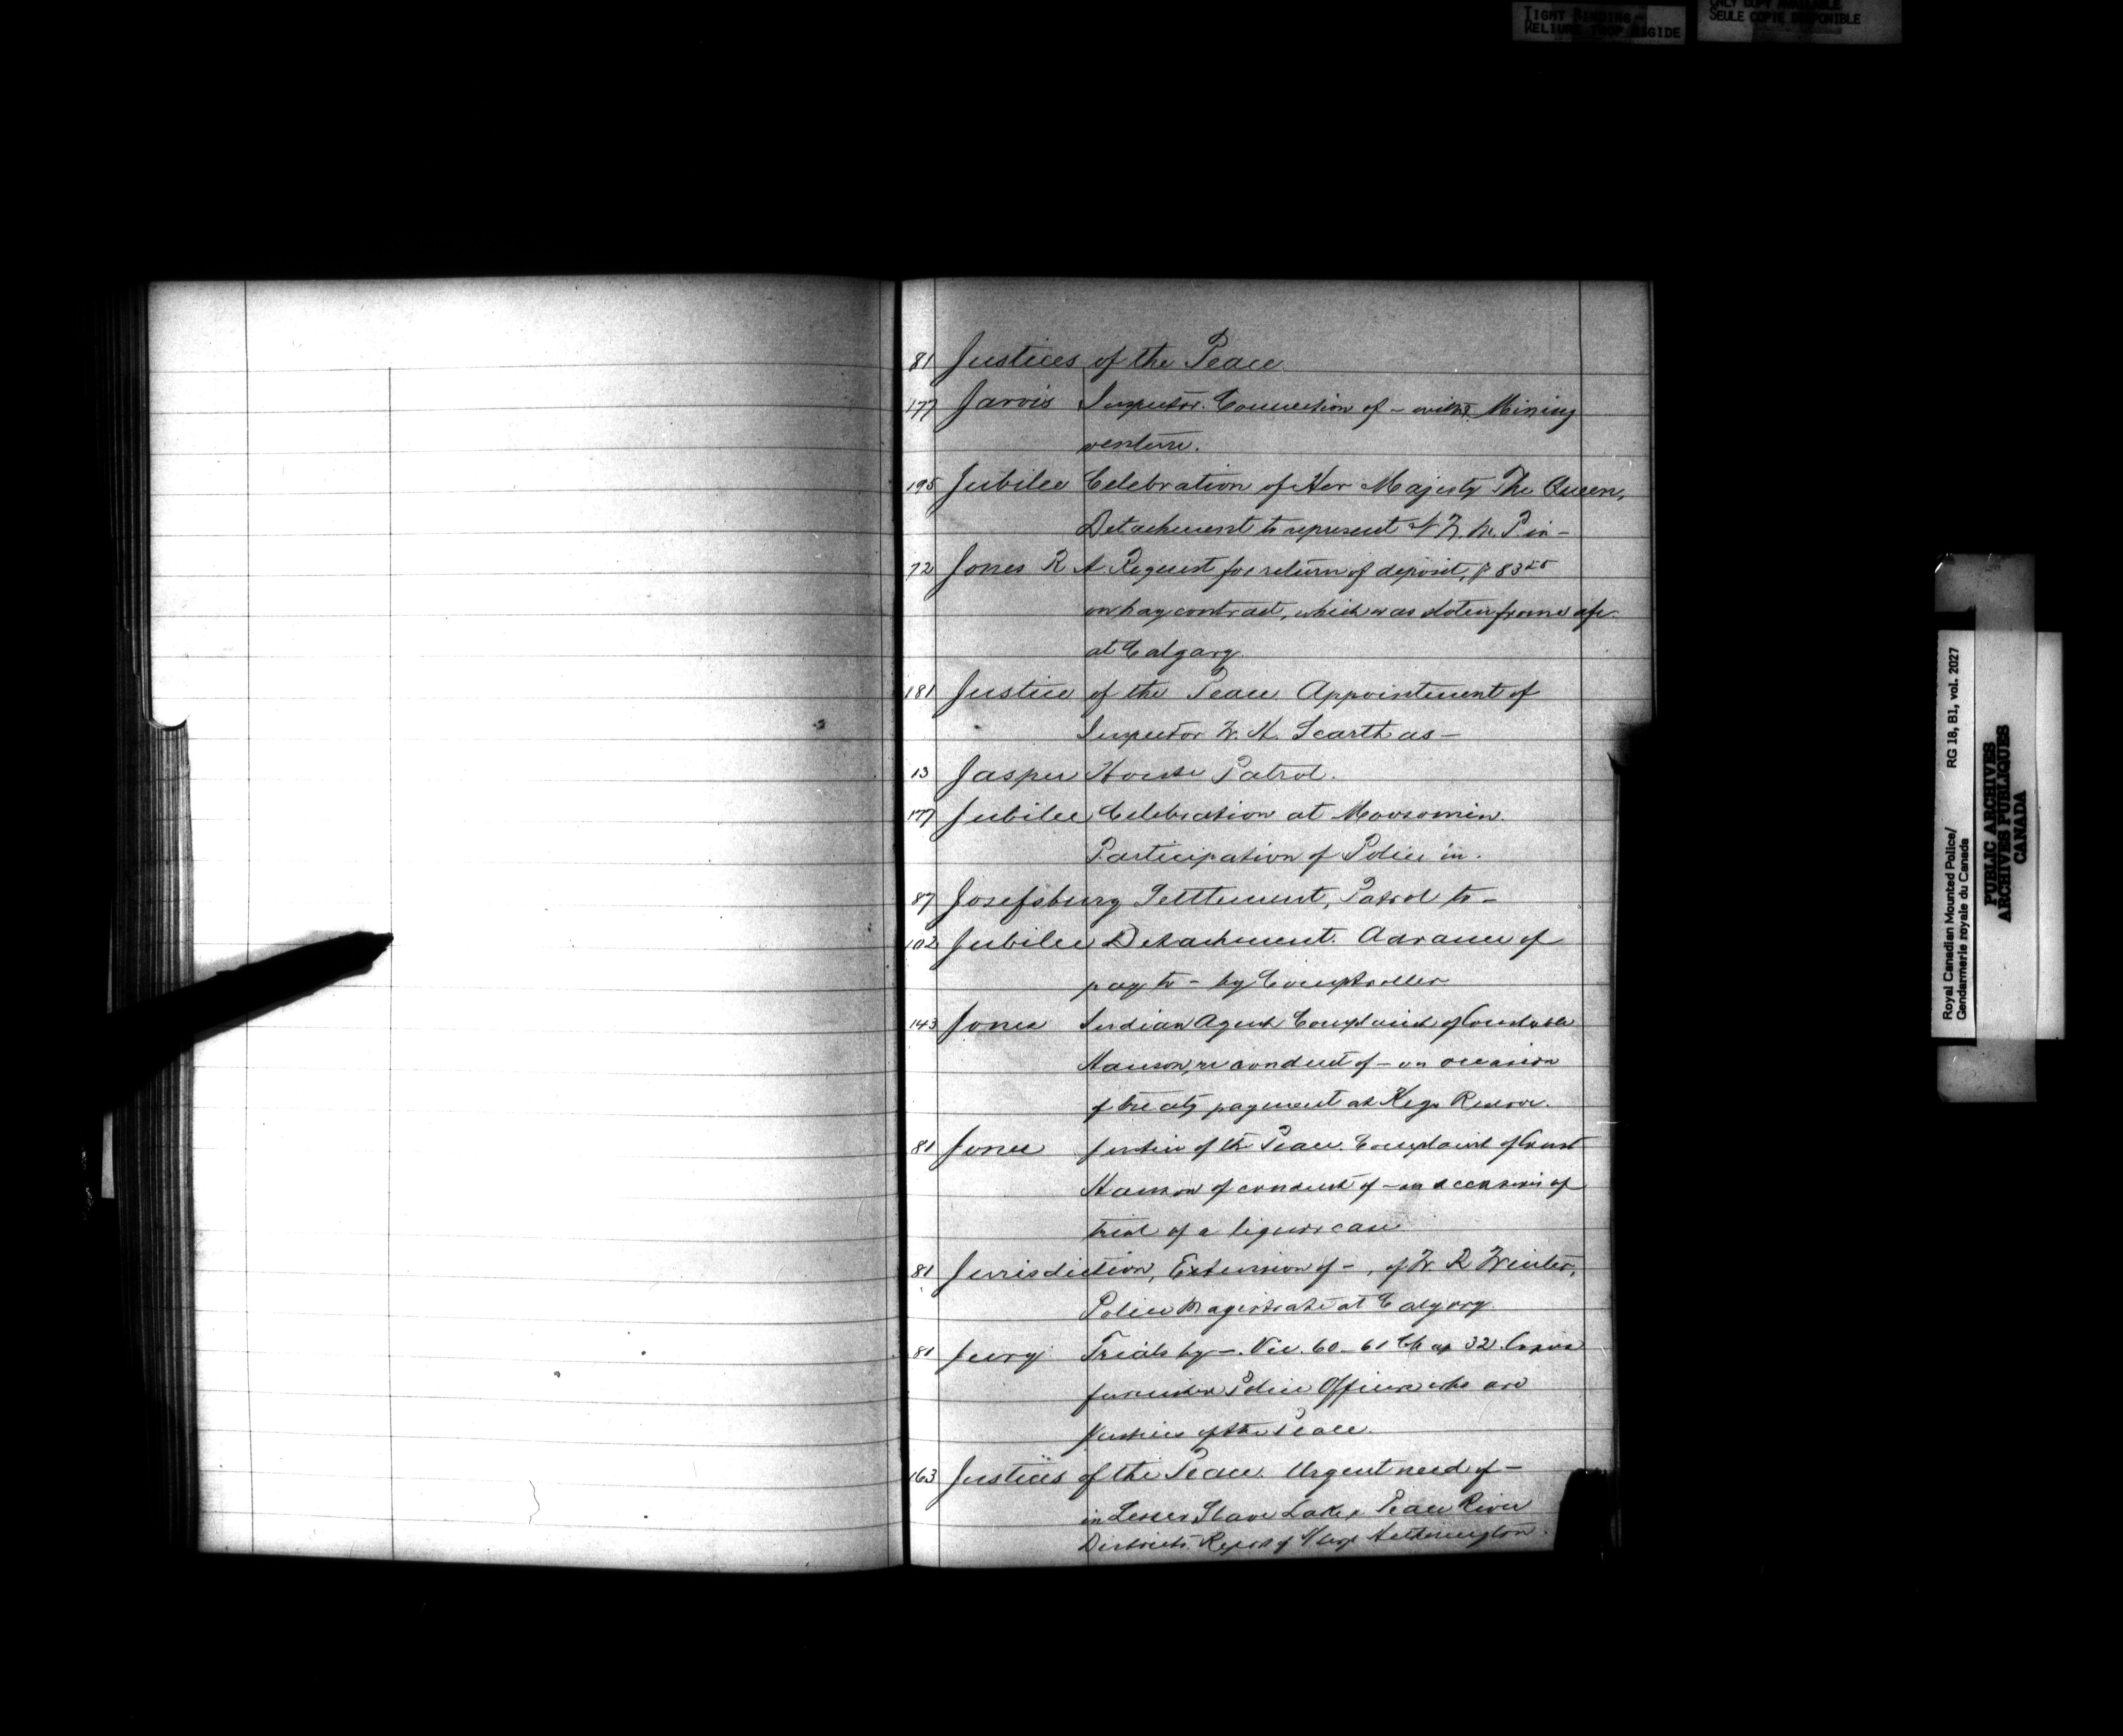 TIGHT BINDING
RELIURE TROP RIGIDE
ONLY COPY AVAILABLE
SEULE COPIE DISPONIBLE
81 Justices of the Peace.
177 Jarvis Inspector. Connection of – with Mining
venture.
195 Jubilee Celebration of Her Majesty The Queen,
Detachment to represent N.W.M.P. in –
72 Jones R A Request for return of deposit, $83
on hay contract, which was stolen from
at Calgary.
181 Justice of the Peace. Appointment of
Inspector W. H. Scarth as –
13 Jasper House Patrol.
177 Jubilee Celebration at Moosomin.
Participation of Police in.
87 Josefsburg Settlement, Patrol to –
102 Jubilee Detachment. Advance of
pay to – by Comptroller
143 Jones Indian Agent Complaint of Constable
Hanson, re conduct of – on occasion
of treaty payment at Keys Reserve.
81 Jones Justice of the Peace. Complaint of Const
Hanson of conduct of – on occasion of
trial of a liquor case
81 Jurisdiction, Extension of –, of W. R Winter,
Police Magistrate at Calgary.
81 Jury Trials by –. Vic. 60–61 Chap 32. Copies
furnished Police Officers who are
Justices of the Peace.
163 Justices of the Peace. Urgent need of –
in Lesser Slave Lake & Peace River
Districts. Report of S/Sergt Hetherington.
Royal Canadian Mounted Police/ RG 18, B1, vol. 2027
Gendarmerie royale du Canada
PUBLIC ARCHIVES
ARCHIVES PUBLIQUES
CANADA